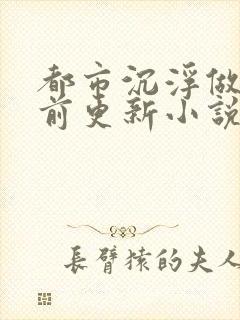 都市沉浮做
前更新小說
長臂猿的夫人